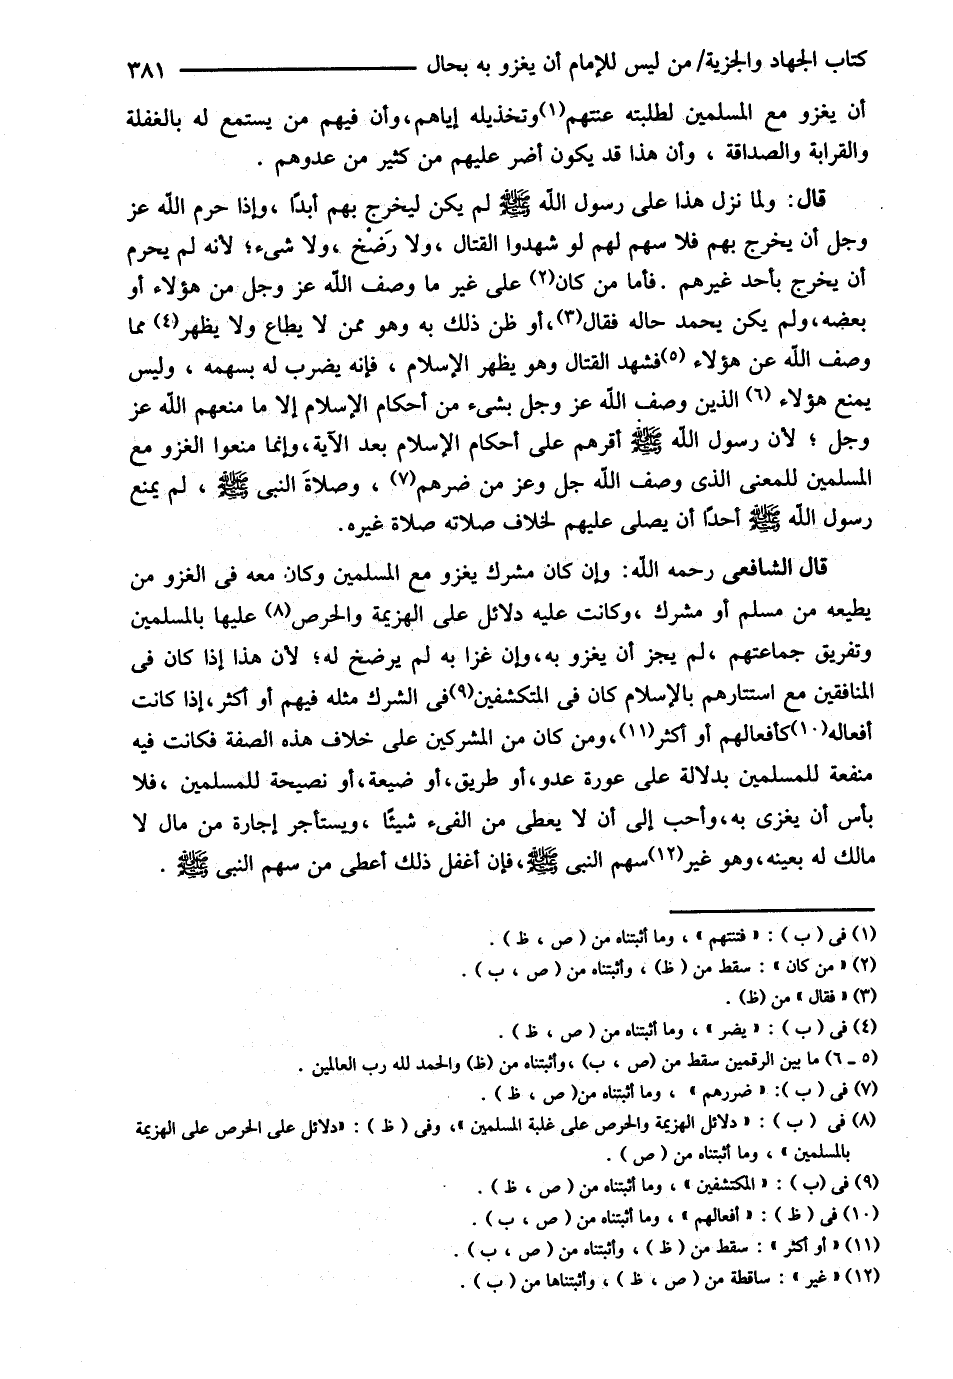 كتاب الجهاد والجزية/ من ليس للإمام أن يغزو به بحال ــــــــــــ ٣٨١
أن يغزو مع المسلمين لطلبته عنتهم(١)وتخذيله إياهم،وأن فيهم من يستمع له بالغفلة
والقرابة والصداقة ، وأن هذا قد يكون أضر عليهم من كثير من عدوهم .
قال: ولما نزل هذا على رسول الله ﷺ لم يكن ليخرج بهم أبدًا ،وإذا حرم الله عز
وجل أن يخرج بهم فلا سهم لهم لو شهدوا القتال ،ولا رَضْخ ،ولا شىء؛ لأنه لم يحرم
أن يخرج بأحد غيرهم .فأما من كان(٢) على غير ما وصف الله عز وجل من هؤلاء أو
بعضه،ولم يكن يحمد حاله فقال(٣)،أو ظن ذلك به وهو ممن لا يطاع ولا يظهر(٤) مما
وصف الله عن هؤلاء (٥)فشهد القتال وهو يظهر الإسلام ، فإنه يضرب له بسهمه ، وليس
يمنع هؤلاء (٦) الذين وصف الله عز وجل بشىء من أحكام الإسلام إلا ما منعهم الله عز
وجل ؛ لأن رسول الله ﷺ أقرهم على أحكام الإسلام بعد الآية،وإنما منعوا الغزو مع
المسلمين للمعنى الذى وصف الله جل وعز من ضرهم(٧) ، وصلاةَ النبى ﷺ ، لم يمنع
رسول الله ﷺ أحدًا أن يصلى عليهم لخلاف صلاته صلاة غيره.
قال الشافعى رحمه الله: وإن كان مشرك يغزو مع المسلمين وكان معه فى الغزو من
يطيعه من مسلم أو مشرك ،وكانت عليه دلائل على الهزيمة والحرص(٨) عليها بالمسلمين
وتفريق جماعتهم ،لم يجز أن يغزو به،وإن غزا به لم يرضخ له؛ لأن هذا إذا كان فى
المنافقين مع استتارهم بالإسلام كان فى المتكشفين(٩)فى الشرك مثله فيهم أو أكثر،إذا كانت
أفعاله(١٠)كأفعالهم أو أكثر(١١)،ومن كان من المشركين على خلاف هذه الصفة فكانت فيه
منفعة للمسلمين بدلالة على عورة عدو،أو طريق،أو ضيعة،أو نصيحة للمسلمين ،فلا
بأس أن يغزى به،وأحب إلى أن لا يعطى من الفىء شيئًا ،ويستأجر إجارة من مال لا
مالك له بعينه،وهو غير(١٢)سهم النبى ﷺ،فإن أغفل ذلك أعطى من سهم النبى ﷺ .
(١) فى ( ب ) : « فتنتهم » ، وما أثبتناه من ( ص ، ظ ) .
(٢) « من كان » : سقط من ( ظ) ، وأثبتناه من ( ص ، ب ) .
(٣) « فقال » من (ظ) .
(٤) فى ( ب ) : « يضر » ، وما أثبتناه من ( ص ، ظ ) .
(٥ ــ ٦) ما بين الرقمين سقط من (ص ، ب) ،وأثبتناه من (ظ) والحمد لله رب العالمين .
(٧) فى ( ب ): « ضررهم » ، وما أثبتناه من( ص ، ظ ) .
(٨) فى ( ب ) : « دلائل الهزيمة والحرص على غلبة المسلمين »، وفى ( ظ ) : «دلائل على الحرص على الهزيمة
بالمسلمين » ، وما أثبتناه من ( ص ) .
(٩) فى (ب ) : « المكتشفين » ، وما أثبتناه من ( ص ، ظ ) .
(١٠) فى ( ظ ) : « أفعالهم » ، وما أثبتناه من ( ص ، ب ) .
(١١) « أو أكثر » : سقط من ( ظ ) ، وأثبتناه من ( ص ، ب ) .
(١٢) « غير » : ساقطة من ( ص ، ظ ) ، وأثبتناها من ( ب ) .